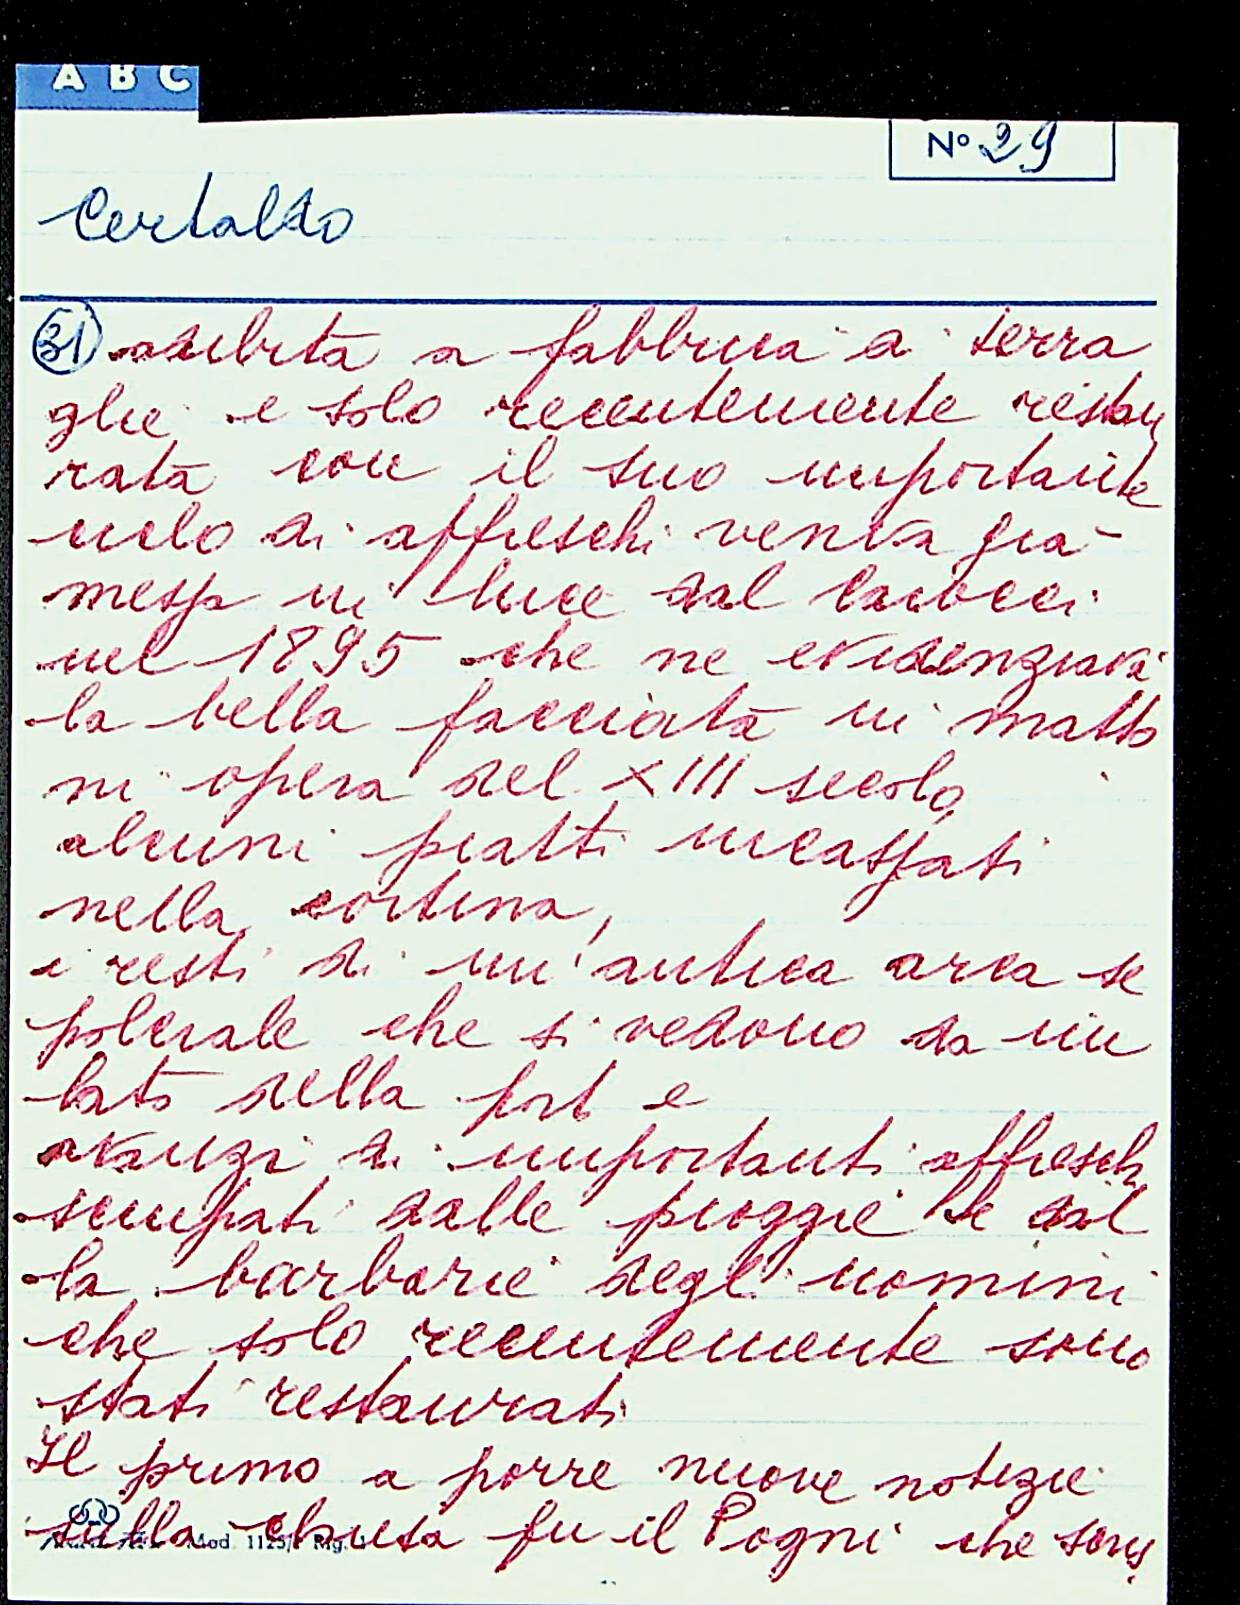 A B C
Nº 29
Certaldo
31 adibita a fabbrica a terra
glie e solo recentemente restau
rata con il suo importante
ciclo di affreschi veniva già
messa in luce dal Carocci
nel 1895 che ne evidenziava
la bella facciata in matto
ni opera del XIII secolo,
alcuni piatti incassati
nella cortina,
i resti di un'antica arca se
polcrale che si vedono da un
lato della port e
avanzi di importanti affreschi
sciupati dalle pioggie e dal
la barbarie degli uomini
che solo recentemente sono
stati restaurati
Il primo a porre nuove notizie
sulla chiesa fu il Pogni che
Mod. 1125/ Rig.